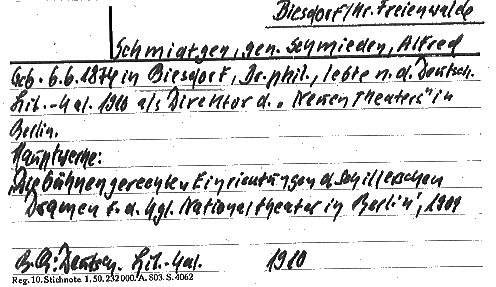 Biesdorf/Kr. Freienwalde
Schmidtgen, gen. Schmieden, Alfred
Geb. 6.6.1874 in Biesdorf, Dr. phil., lebte n. d. Deutsch.
Lit.-Kal. 1910 als Direktor d. „Neuen Theaters" in
Berlin.
Hauptwerke:
Die bühnengerechten Einrichtungen d. Schillerschen
Dramen f. d. Kgl. Nationaltheater in Berlin, 1909
Deutsch. Lit.-Kal. 1910
Reg. 10. Stichnote 1. 50. 232000. A. 803. S. 4062